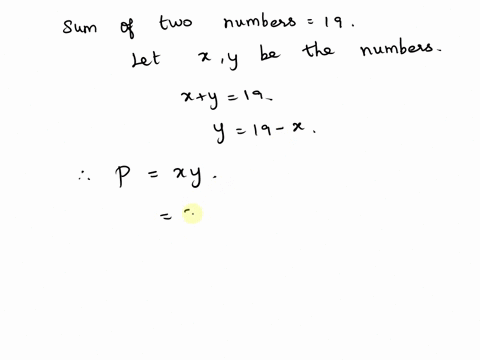 Sum of two numbers = 19.
Let x, y be the numbers.
x+y = 19.
y = 19 - x.
∴ P = xy.
=